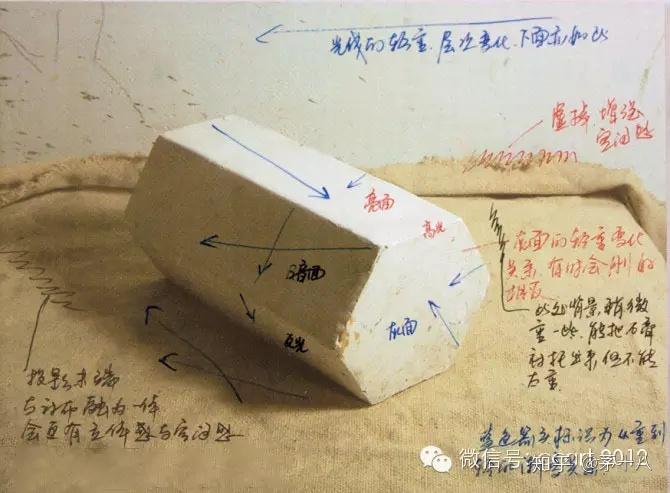 光线的轻重、层次变化、下面亦如此
虚掉，增强
空间感
亮面
高光
灰面的轻重变化
关系，有时会刚刚
相反
暗面
此处背景，稍微
重一些，能把石膏
衬托出来，但不能
太重
灰面
反光
投影末端
与衬布融为一体
会更有立体感与空间感
蓝色箭头标识为从重到
微信号:cggrt_2012
知乎 @茅十八